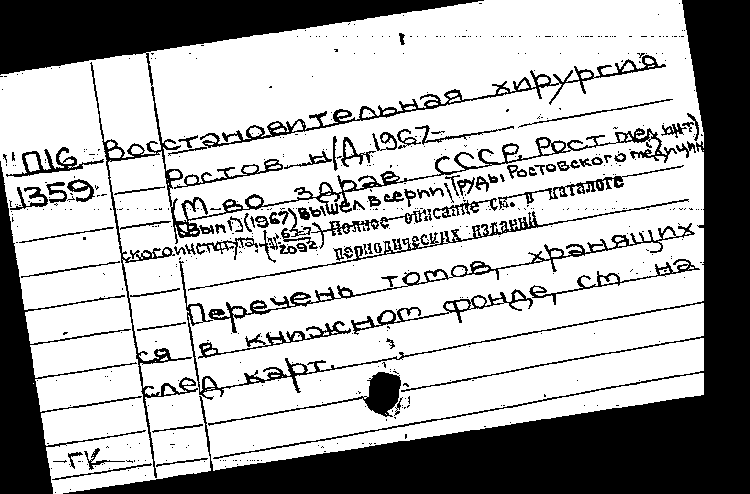 П16
1359
Восстановительная хирургия
Ростов н/Д, 1967-
(М-во здрав. СССР. Рост. мед. ин-т)
Вып 1 (1967) вышел в серии: Труды Ростовского медицин
ского института,
Полное описание см. в каталоге
периодических изданий
Перечень томов, хранящих-
ся в книжном фонде, см. на
след. карт.
ГК